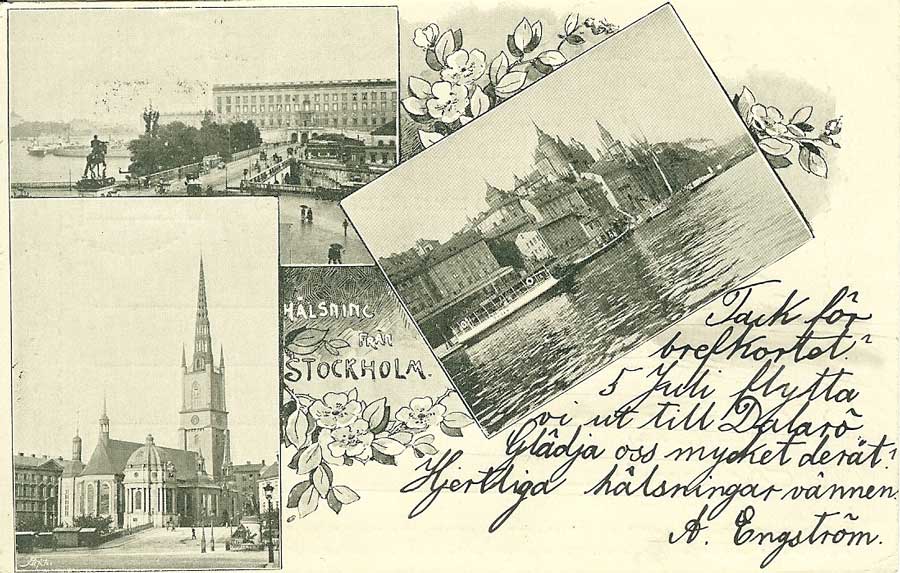 HÄLSNING
FRÅN
STOCKHOLM.
Tack för
brefkortet!
5 Juli flytta
vi ut till Dalarö
Glädja oss mycket deråt!
Hjertliga hälsningar vännen
A. Engström.